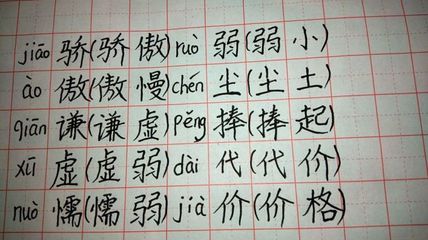 jiāo 骄(骄傲) ruò 弱(弱小)
ào 傲(傲慢) chén 尘(尘土)
qiān 谦(谦虚) pěng 捧(捧起)
xū 虚(虚弱) dài 代(代价)
nuò 懦(懦弱) jià 价(价格)